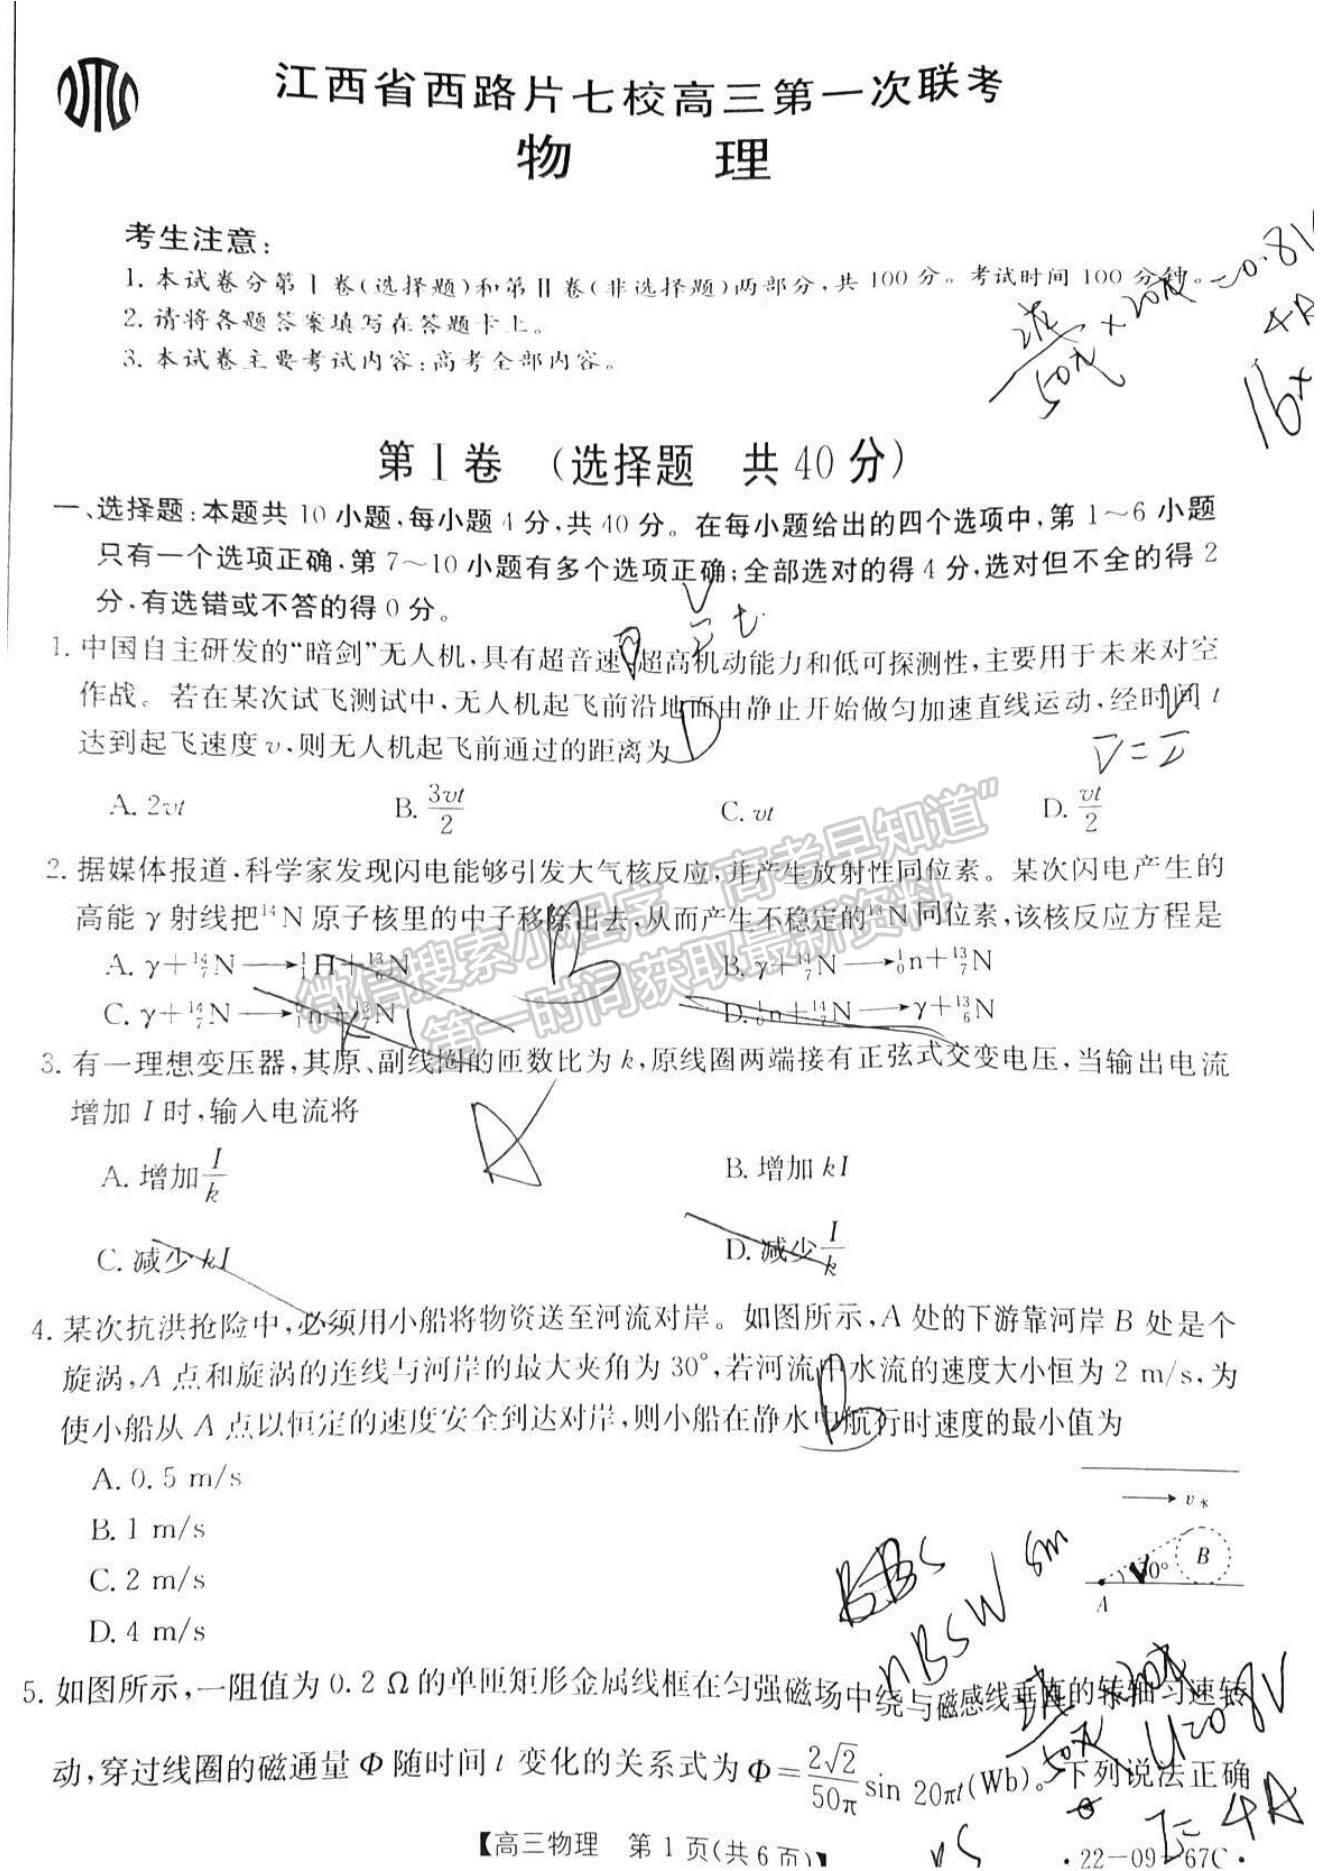 江西省西路片七校高三第一次联考
物 理
考生注意：
1. 本试卷分第Ⅰ卷(选择题)和第Ⅱ卷(非选择题)两部分,共 100 分。考试时间 100 分钟。
2. 请将各题答案填写在答题卡上。
3. 本试卷主要考试内容:高考全部内容。
第Ⅰ卷 (选择题 共 40 分)
一、选择题:本题共 10 小题,每小题 4 分,共 40 分。在每小题给出的四个选项中,第 1～6 小题
只有一个选项正确,第 7～10 小题有多个选项正确;全部选对的得 4 分,选对但不全的得 2
分,有选错或不答的得 0 分。
1. 中国自主研发的“暗剑”无人机,具有超音速、超高机动能力和低可探测性,主要用于未来对空
作战。若在某次试飞测试中,无人机起飞前沿地面由静止开始做匀加速直线运动,经时间 t
达到起飞速度 v,则无人机起飞前通过的距离为
A. 2vt B. 3vt/2 C. vt D. vt/2
2. 据媒体报道,科学家发现闪电能够引发大气核反应,并产生放射性同位素。某次闪电产生的
高能 γ 射线把¹⁴N 原子核里的中子移除出去,从而产生不稳定的¹³N 同位素,该核反应方程是
A. γ+¹⁴₇N→¹₁H+¹³₆N B. γ+¹⁴₇N→¹₀n+¹³₇N
C. γ+¹⁴₇N→ D. ¹₀n+¹⁴₇N→γ+¹³₆N
3. 有一理想变压器,其原、副线圈的匝数比为 k,原线圈两端接有正弦式交变电压,当输出电流
增加 I 时,输入电流将
A. 增加 I/k B. 增加 kI
C. 减少 kI D. 减少 I/k
4. 某次抗洪抢险中,必须用小船将物资送至河流对岸。如图所示,A 处的下游靠河岸 B 处是个
旋涡,A 点和旋涡的连线与河岸的最大夹角为 30°,若河流中水流的速度大小恒为 2 m/s,为
使小船从 A 点以恒定的速度安全到达对岸,则小船在静水中航行时速度的最小值为
A. 0.5 m/s
B. 1 m/s
C. 2 m/s
D. 4 m/s
v水
30° B
A
5. 如图所示,一阻值为 0.2 Ω 的单匝矩形金属线框在匀强磁场中绕与磁感线垂直的转轴匀速转
动,穿过线圈的磁通量 Φ 随时间 t 变化的关系式为 Φ=2√2/50π sin 20πt(Wb)。下列说法正确
【高三物理 第 1 页(共 6 页)】 ·22-09-67C·
微信搜索小程序“高考早知道”
第一时间获取最新资料